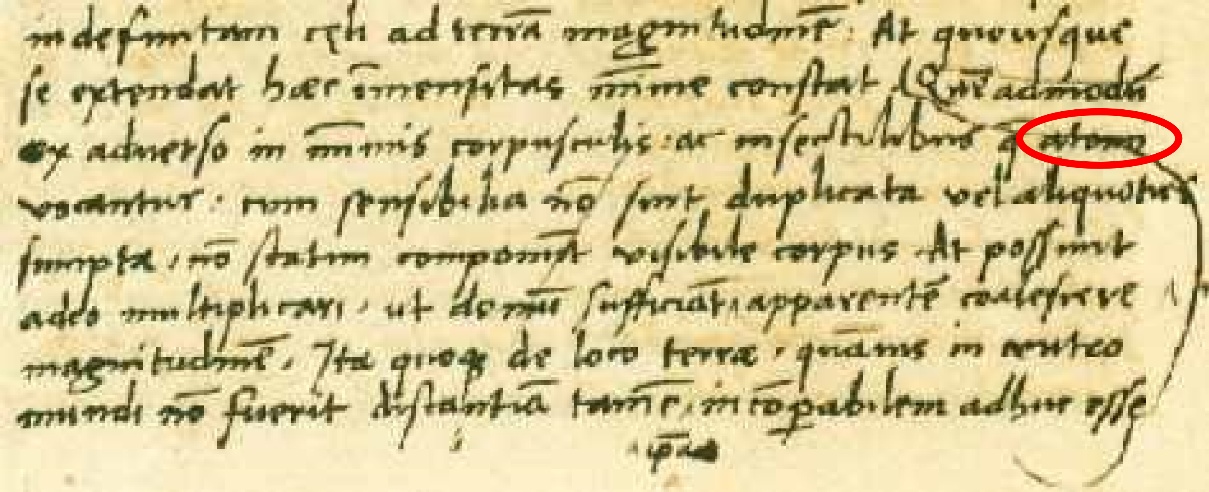 indefinitam cęli ad terrā magnitudinē: At quousque
se extendat hæc īmensitas mīime constat Quēadmodū
ex aduerso in mīimis corpusculis: ac insectilibus q̄ atomi
vocantur: cum sensibilia nō sint duplicata vel aliquoties
sumpta, nō statim componūt visibile corpus At possunt
adeo multiplicari, ut demū sufficiāt, apparentē coalescere
magnitudinē, Ita quoq de loco terræ, quāuis in centro
mundi nō fuerit distantiā tamē, incōparabilem adhuc esse
ip̄am